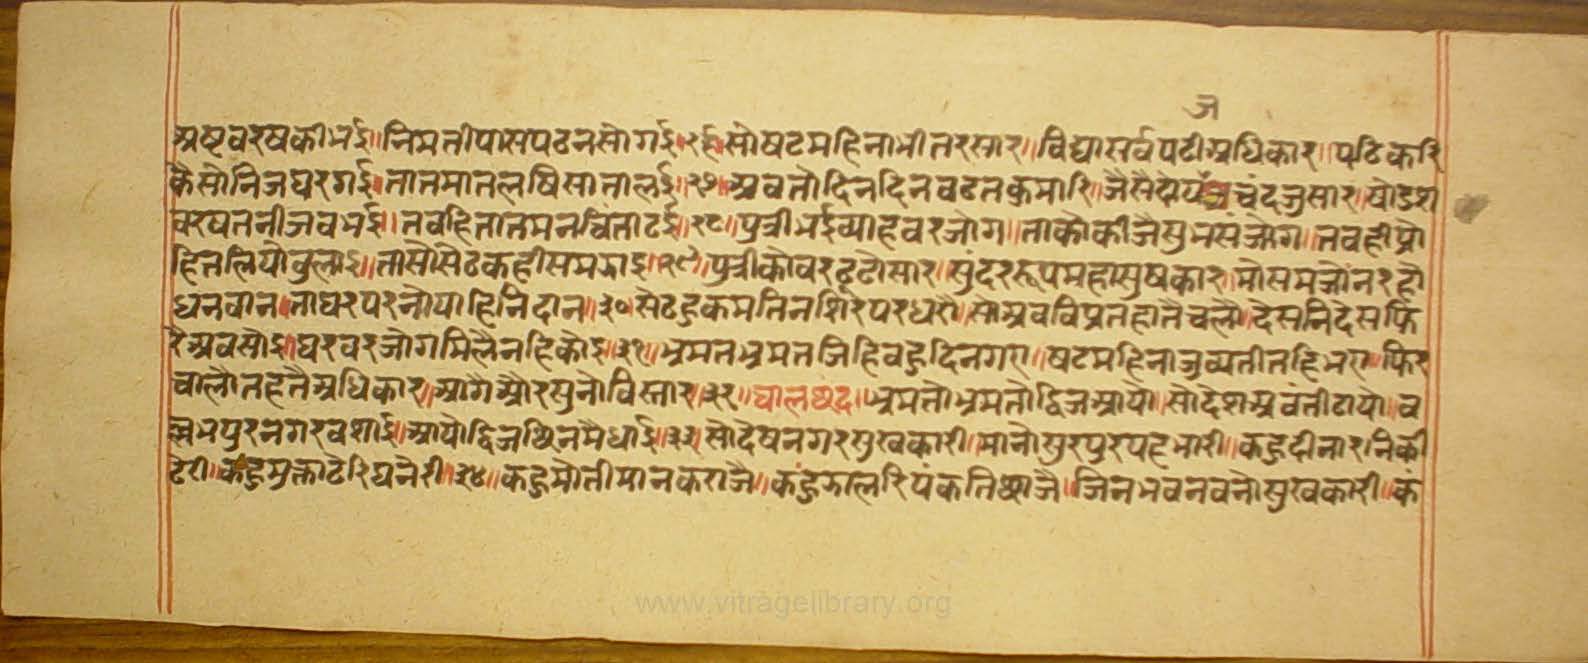 ज
अष्टवरषकीभई॥निमतीपासपढनसोगई॥२६॥सोषटमहिनाभीतरसार॥विद्यासर्वपढीअधिकार॥पढिकरि
कैसोनिजघरगई॥तातमातलषिसातालई॥२७॥अवतोदिनदिनवढतकुमारि॥जैसै चंदजुसार॥षोडश
वरषतनीजवभई॥तवहितातमनचिंताठई॥२८॥पुत्रीभईव्याहवरजोग॥ताकोकीजैसुभसंजोग॥तवहीप्रो
हितलियोवुलाइ॥तासौसेठकहीसमझाइ॥२९॥पुत्रीकोवरढूढोसार॥सुंदररूपमहासुषकार॥मोसमजोनरहो
धनवान॥ताघरपरनोयाहिनिदान॥३०॥सेठहुकमतिनशिरपरधरौ॥सोअवविप्रतहातैचलौ॥देसनिदेसफि
रैअवसोइ॥घरवरजोगमिलैनहिकोइ॥३१॥भ्रमतभ्रमतजिहिवहुदिनगए॥षटमहिनाजुव्यतीतहिभए॥फिर
चालौतहतैअधिकार॥आगैऔरसुनोविस्तार॥३२॥चालछंद॥भ्रमतोभ्रमतोद्विजआयो॥सोदेशअवंतीठायो॥व
ल्लभपुरनगरवशाई॥आयोद्विजछिनमैधाई॥३३॥सोदेषनगरसुखकारी॥मानोसुरपुरपहभारी॥कहुदीनारनिकी
ढेरी॥कहुमुक्ताढेरिघनेरी॥३४॥कहुमोतीमानकराजै॥कहुझालरिपंकतिछाजै॥जिनभवनवनोसुखकारी॥कं
www.vitragelibrary.org